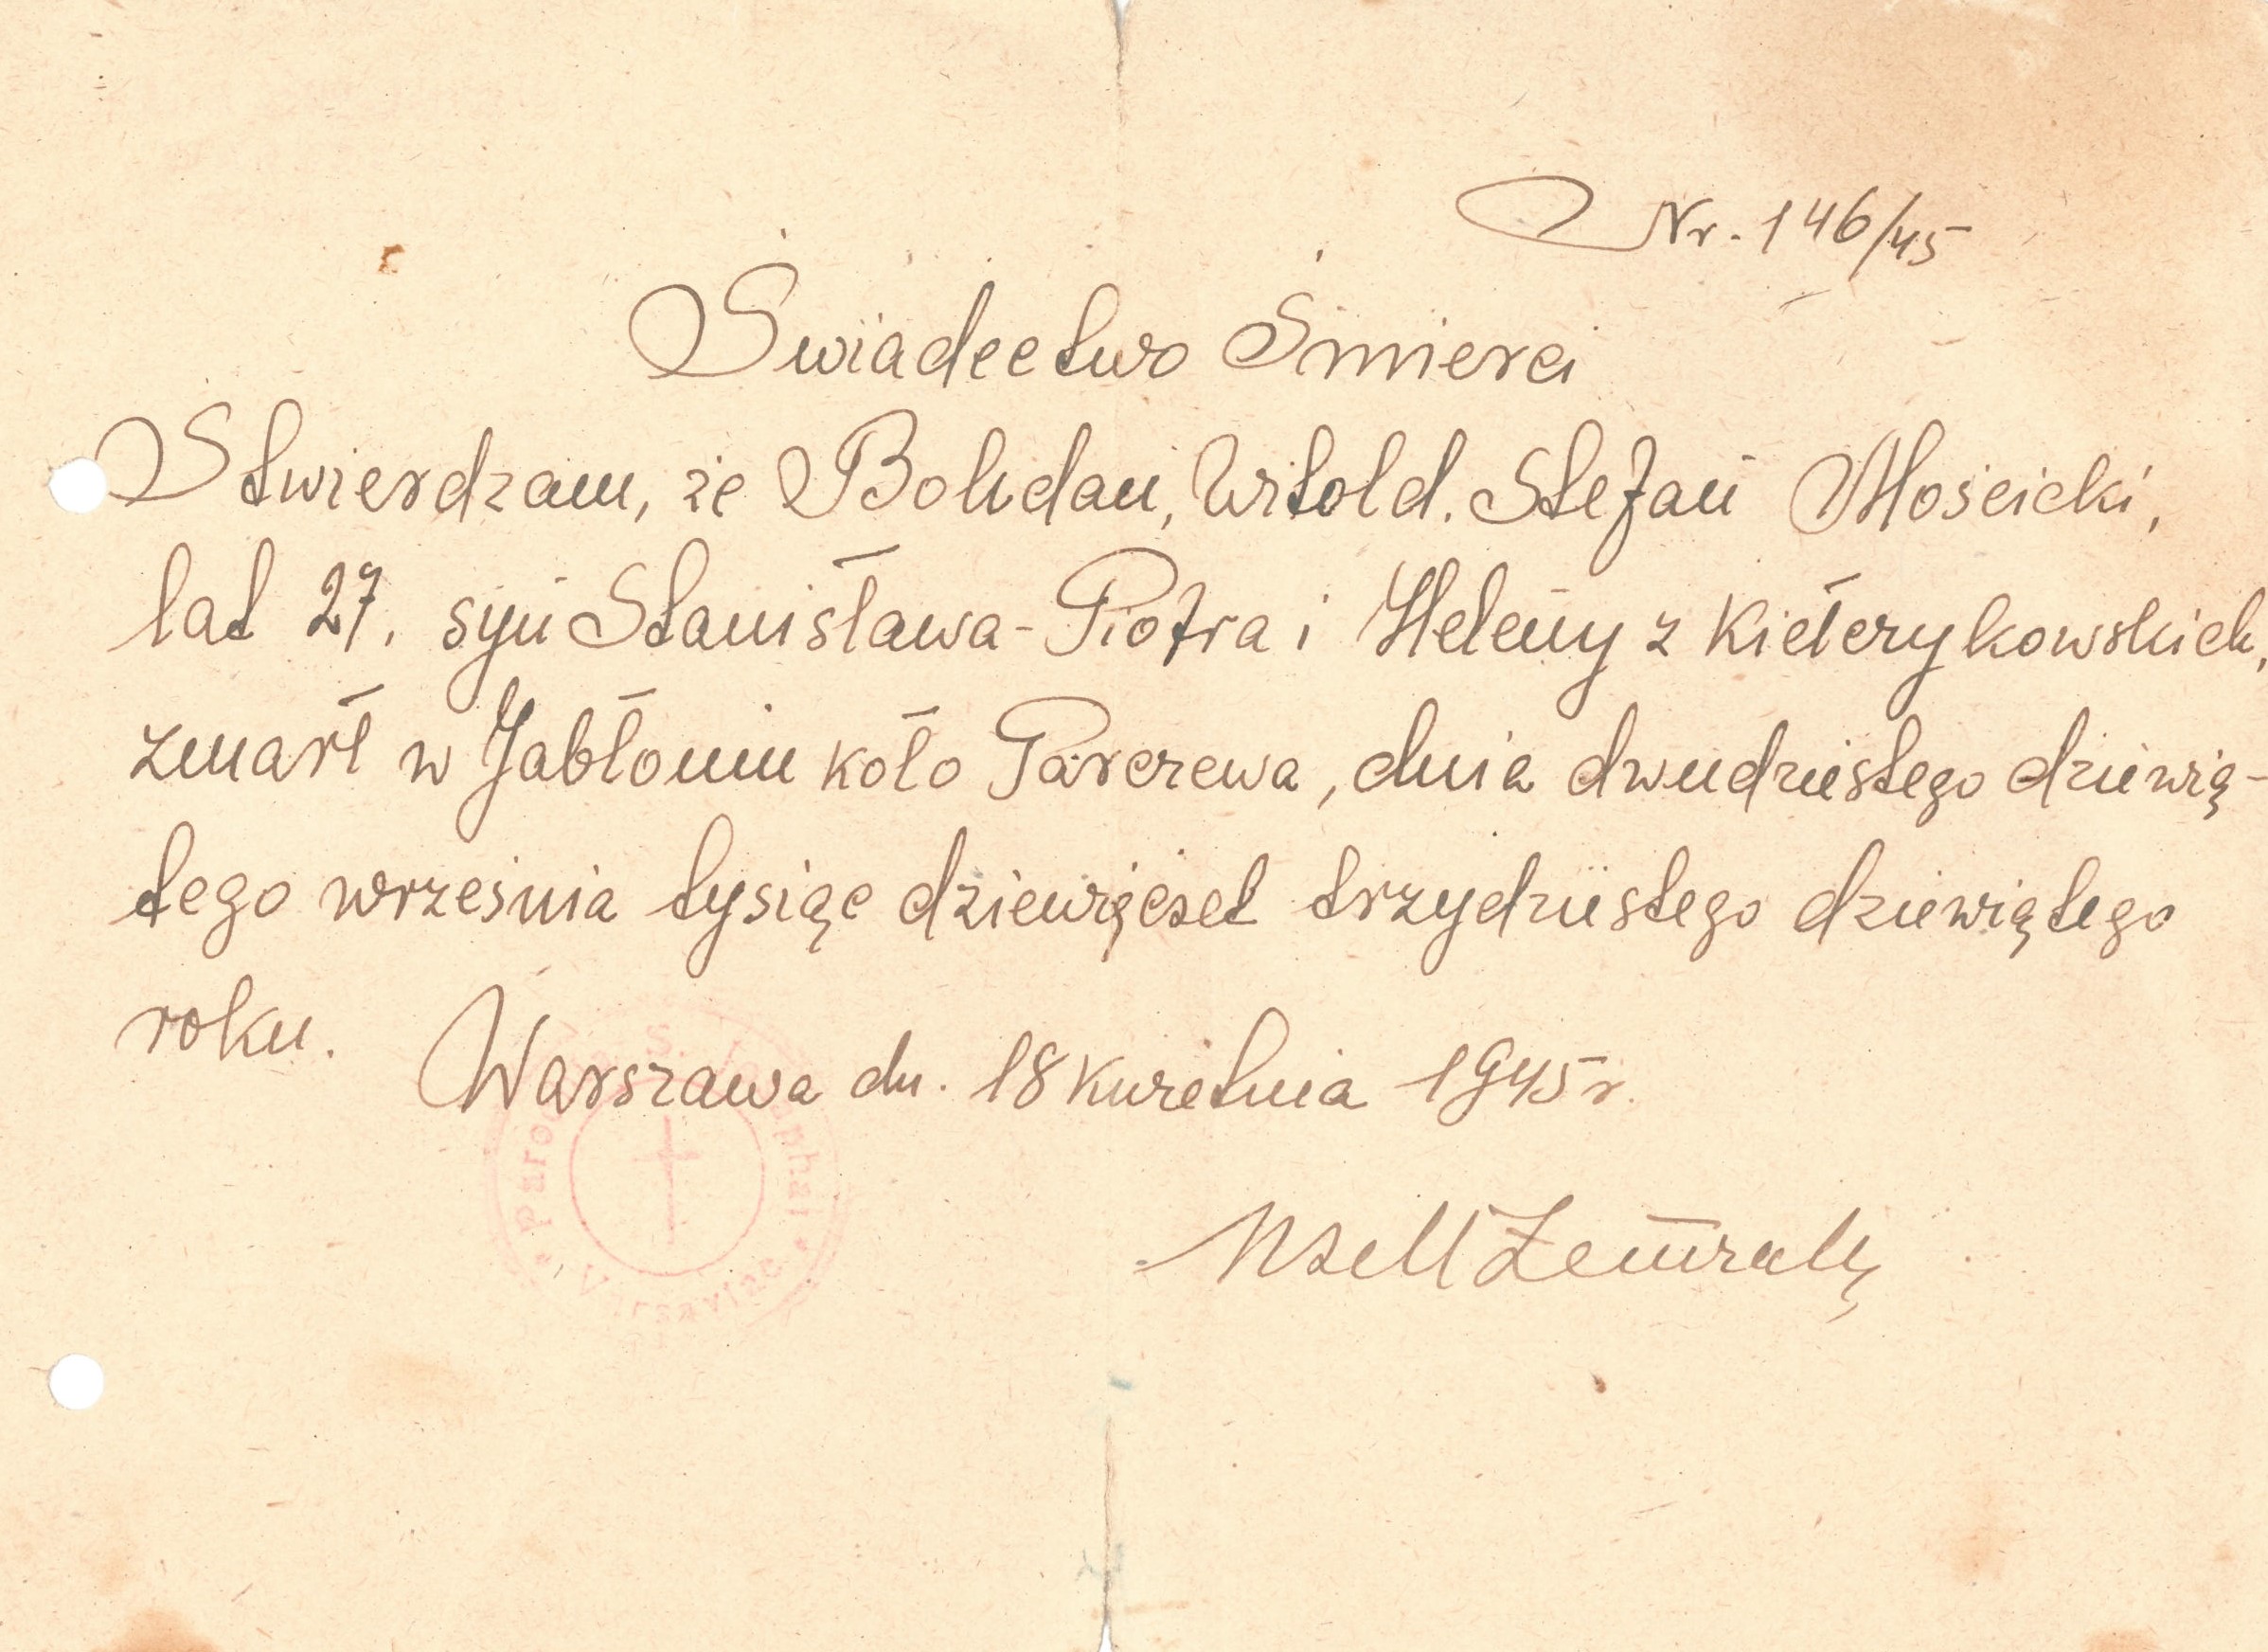 Nr. 146/45
Świadectwo Śmierci
Stwierdzam, że Bohdan, Witold. Stefan Mościcki,
lat 27. syn Stanisława-Piotra i Heleny z Kiełerykowskich,
zmarł w Jabłoniu koło Parczewa, dnia dwudziestego dziewią-
tego września tysiąc dziewięćset trzydziestego dziewiątego
roku.
Warszawa dn. 18 kwietnia 1945 r.